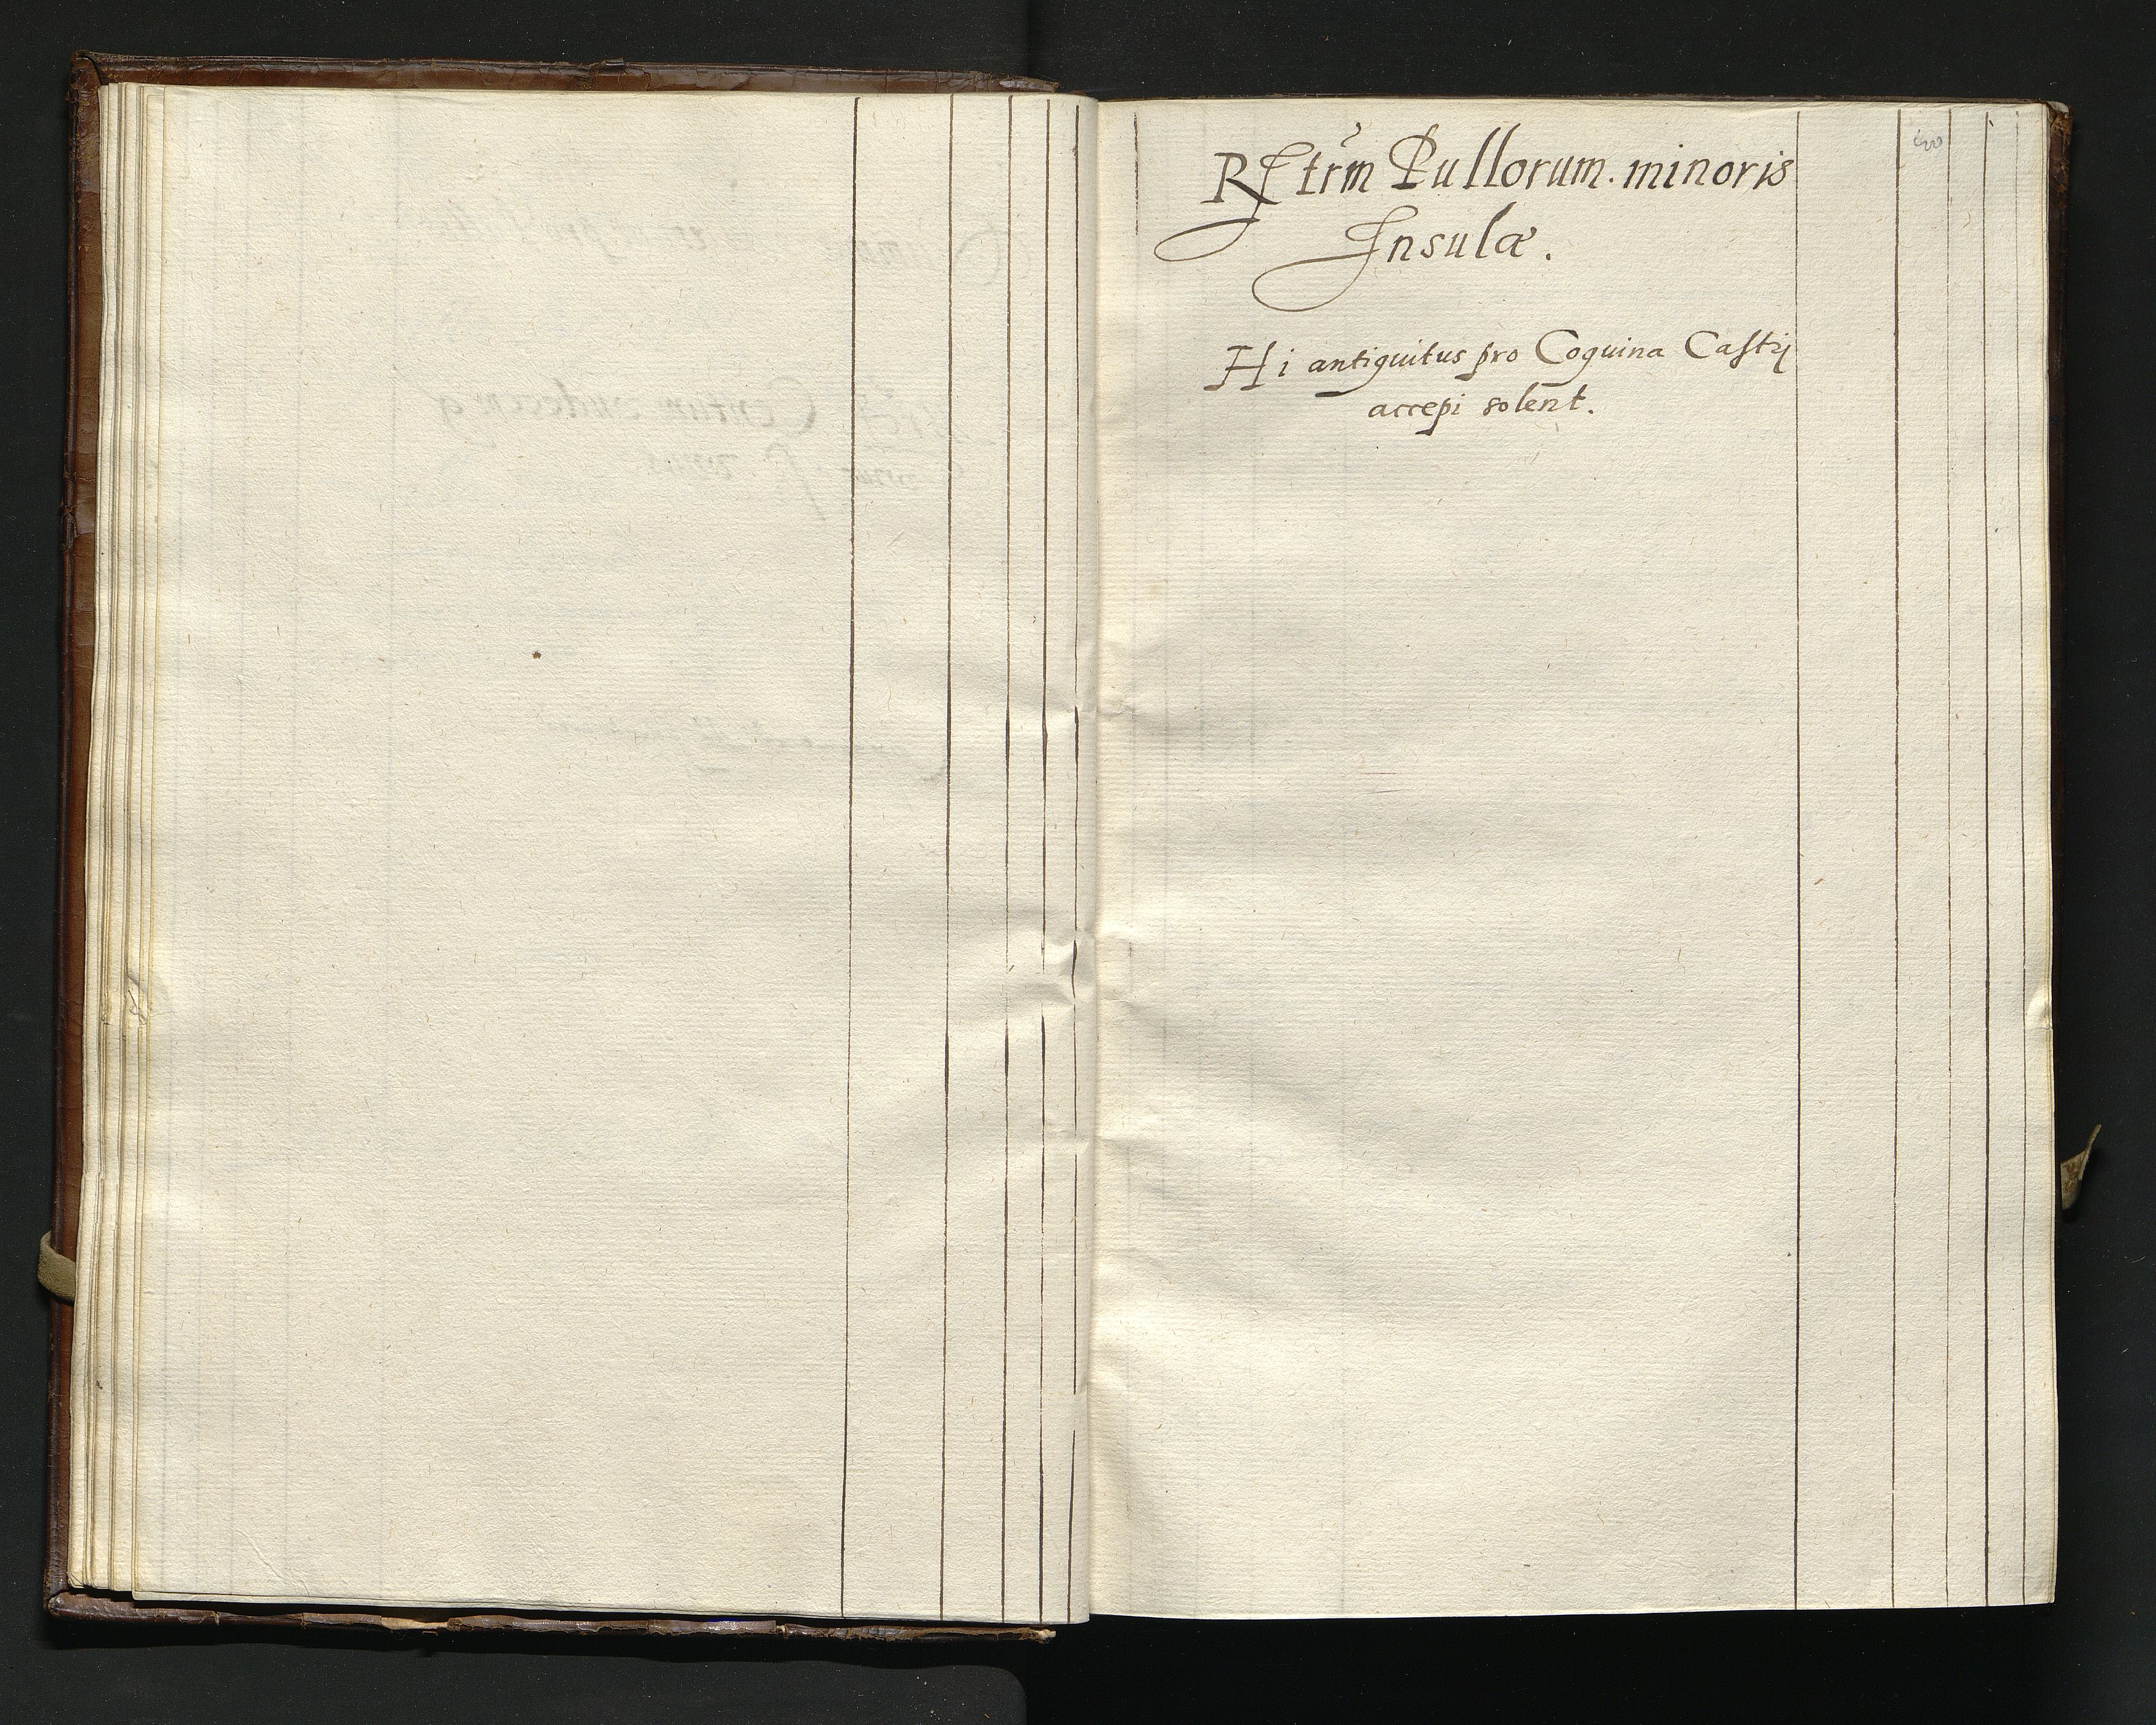 Rstrm Pullorum. minoris
Insulæ.
Hi antiquitus pro Coquina Castrj
accepi solent.